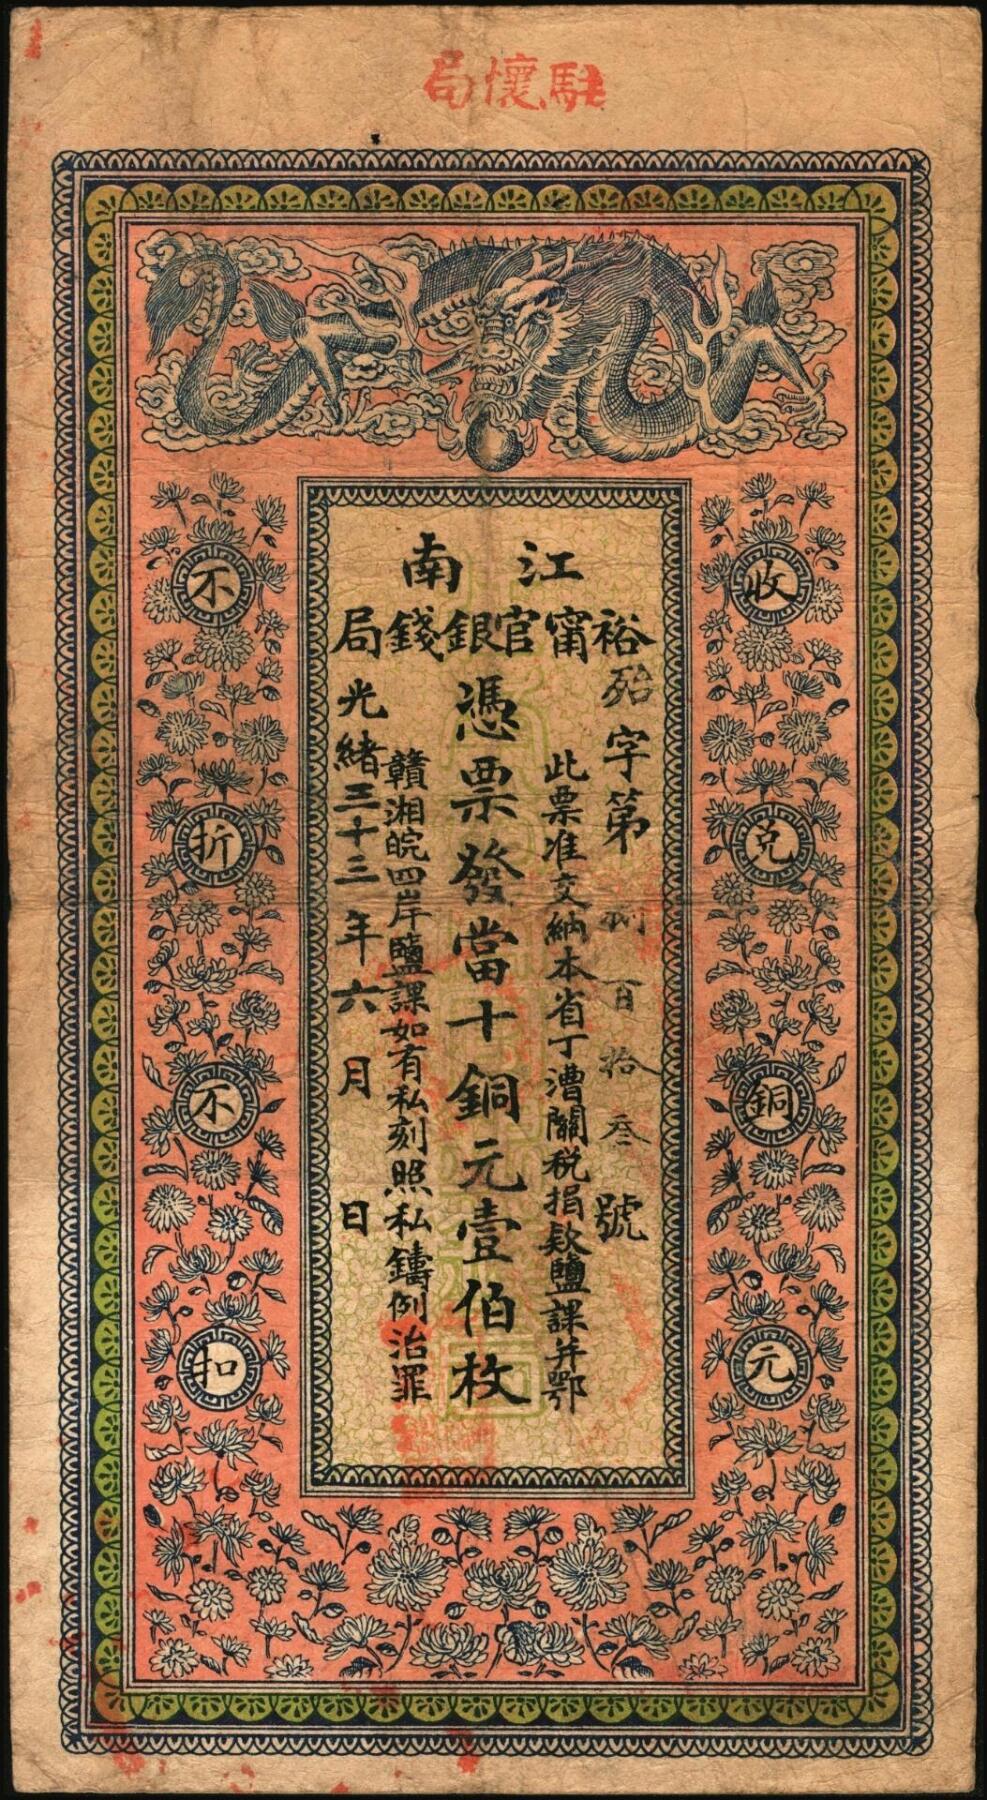 駐懷局
江南
裕甯官銀錢局
字第百拾叁號
此票准交納本省丁漕關稅捐款鹽課并鄂
憑票發當十銅元壹伯枚
贛湘皖四岸鹽課如有私刻照私鑄例治罪
光緒三十三年六月 日
收兌銅元
不折不扣